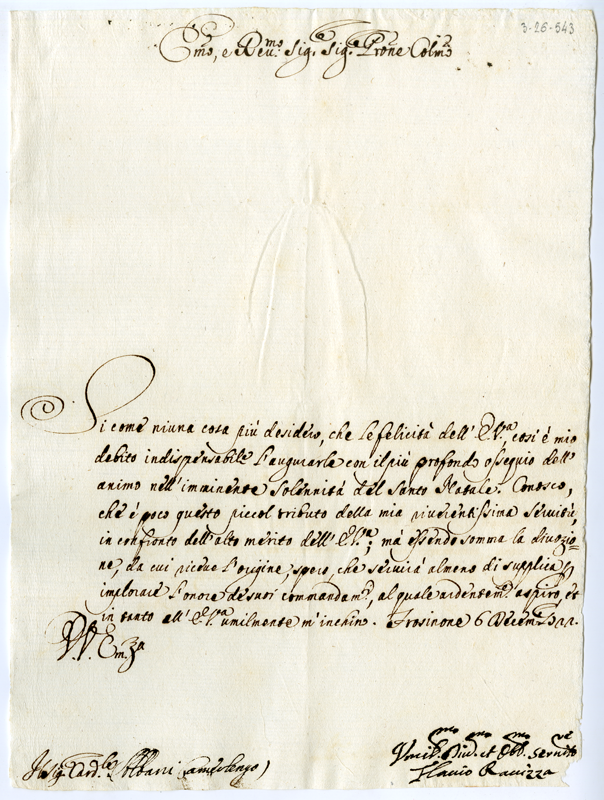 3-26-543
Emo, e Reumo Sig.r Sig.r Prone Colmo
Si come niuna cosa più desidero, che le felicità dell' E.V.a, così è mio
debito indispensabile l'augurarle con il più profondo ossequio dell'
animo nell'imminente solennità del Santo Natale. Conosco,
che è poco questo piccol tributo della mia riuerentissima seruitù,
in confronto dell'alto merito dell'E.V.a; mà essendo somma la diuozio=
ne, da cui riceue l'origine, spero, che seruirà almeno di supplica p
implorare l'onore de suoi commandam.ti, al quale ardentem.te aspiro, et
in tanto all'E.V.a umilmente m'inchino. Frosinone 6 Decem.
V. Em.za
Sig. Card.le Albani Camerlengo)
Vmil.mo Diu.mo et Obb.mo Seruit.re
Flauio Rauizza